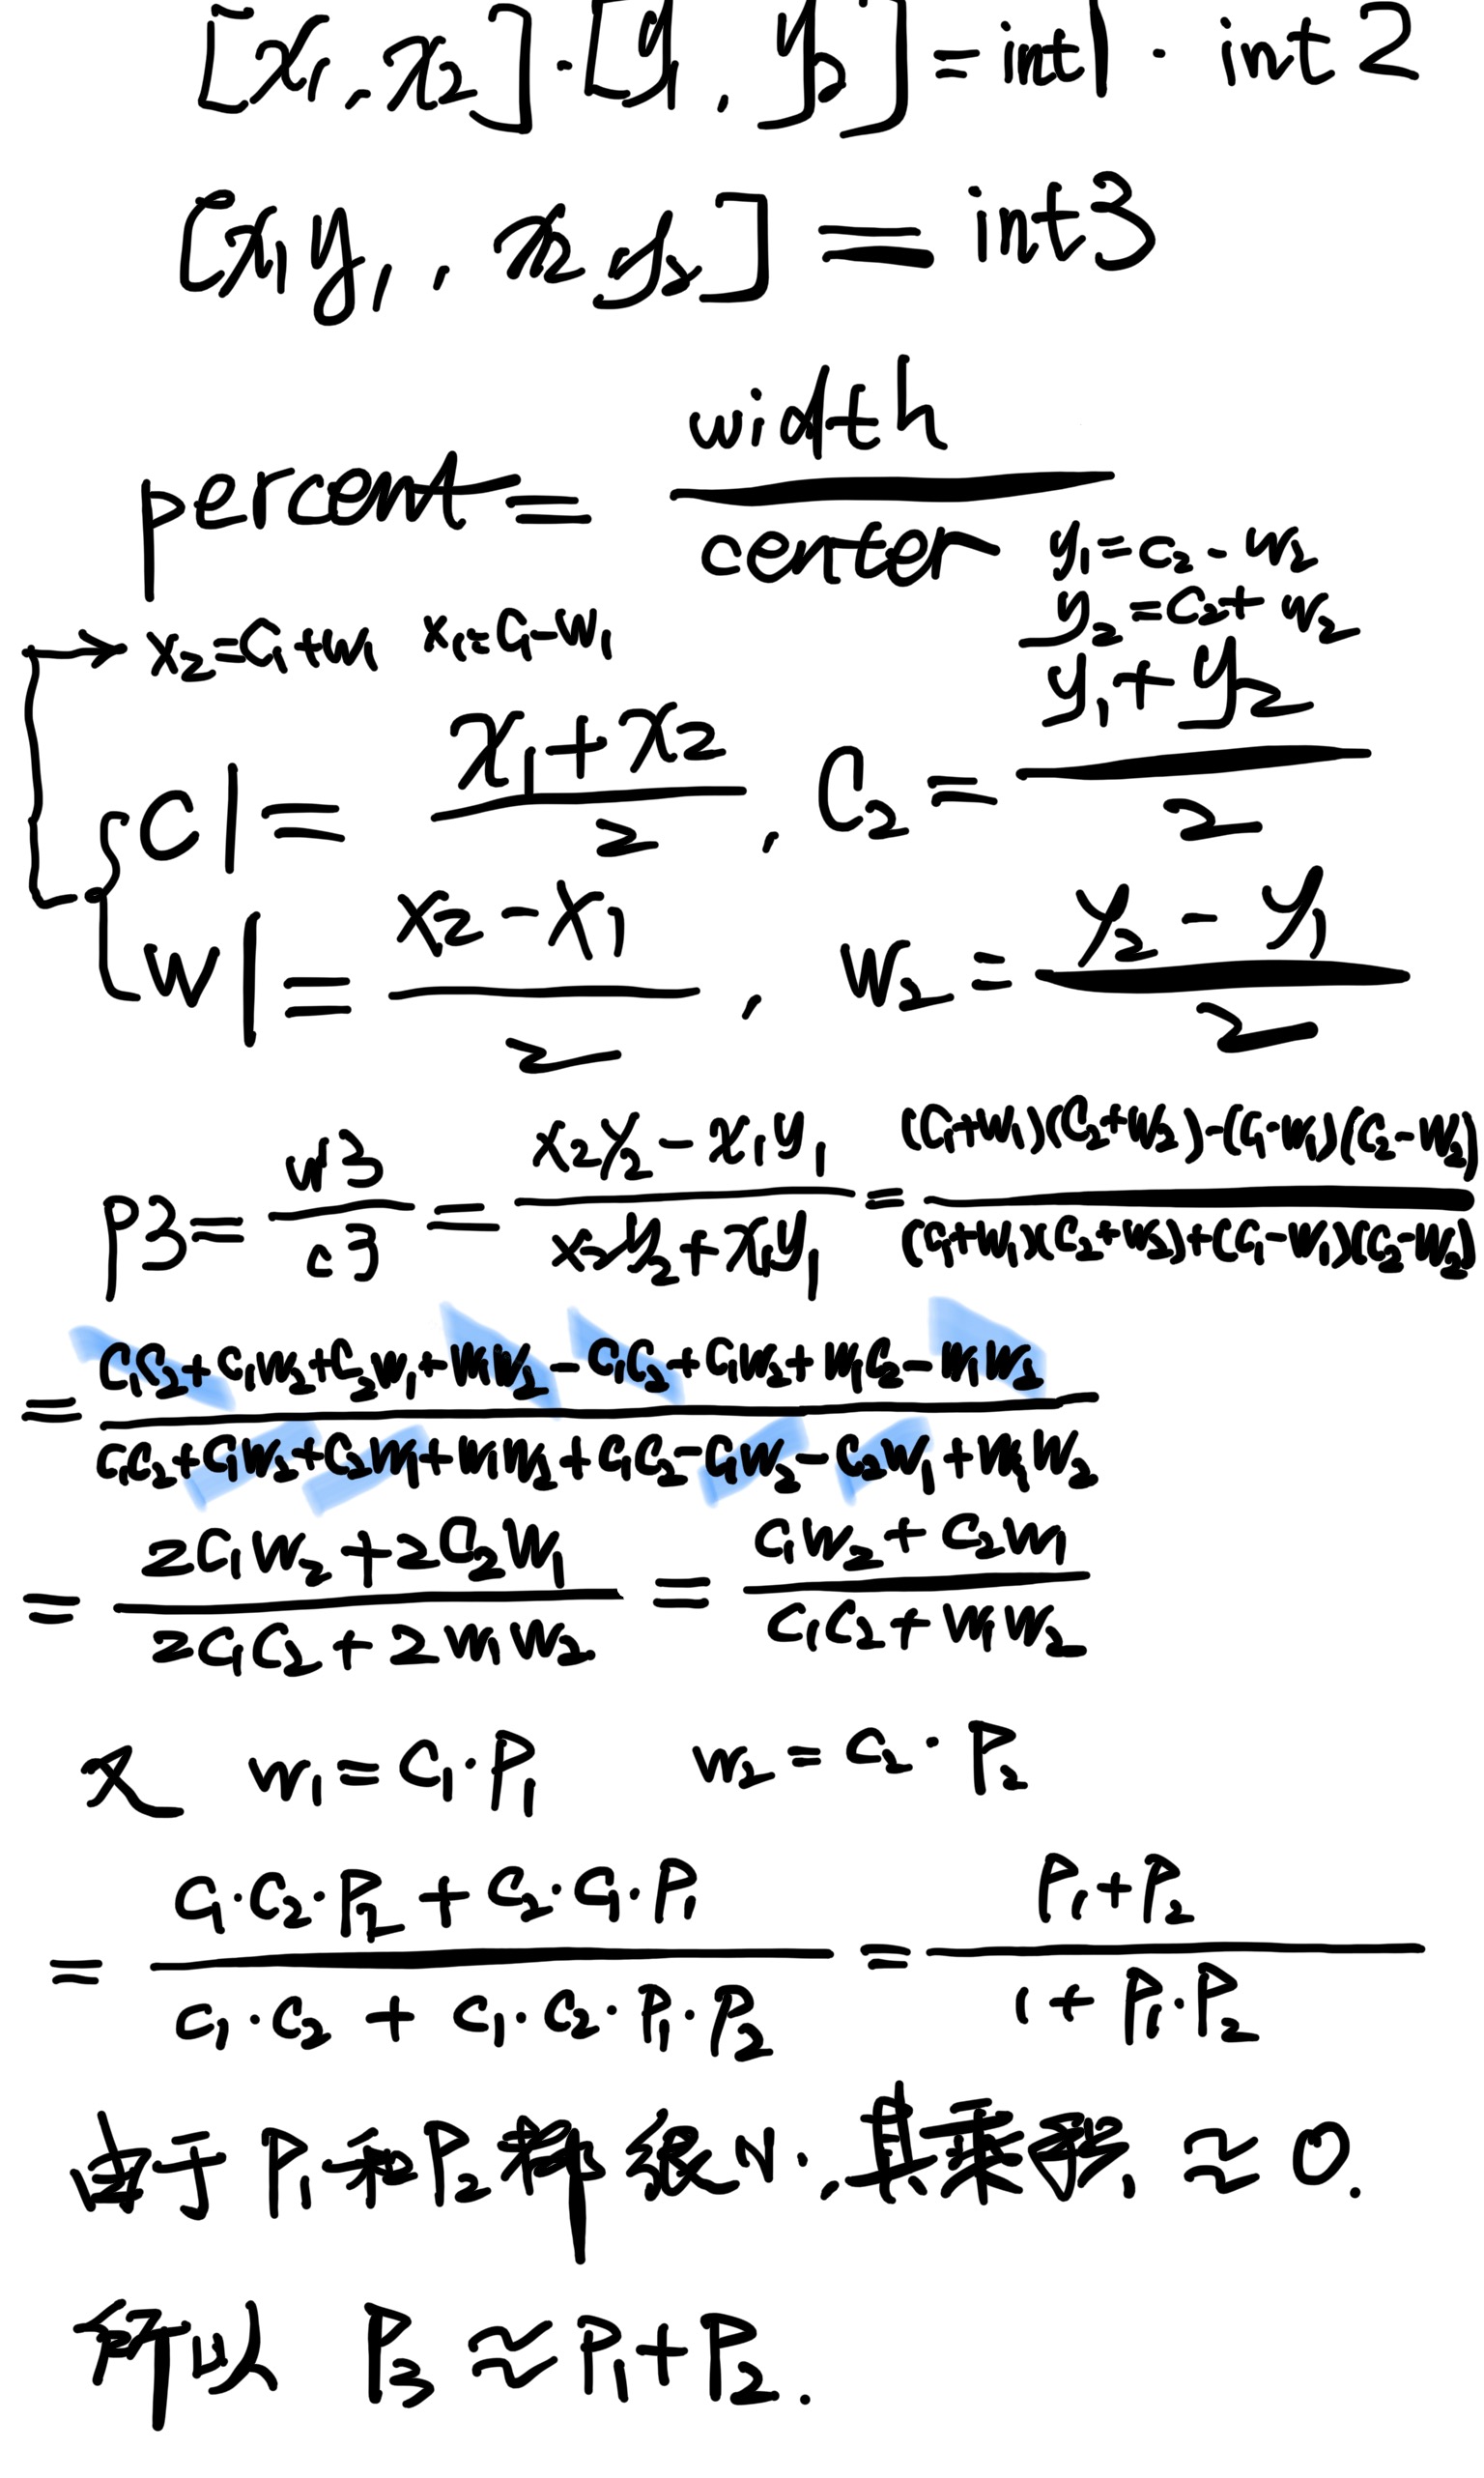 [x1, x2]·[y1, y2] = int1 · int2
[x1y1, x2y2] = int3
percent = width / center
y1 = c2 - w2
y2 = c2 + w2
x2 = c1 + w1 x1 = c1 - w1
c1 = (x1 + x2) / 2, c2 = (y1 + y2) / 2
w1 = (x2 - x1) / 2, w2 = (y2 - y1) / 2
p3 = w3 / c3 = (x2y2 - x1y1) / (x2y2 + x1y1) = ((c1+w1)(c2+w2)-(c1-w1)(c2-w2)) / ((c1+w1)(c2+w2)+(c1-w1)(c2-w2))
= (c1c2 + c1w2 + c2w1 + w1w2 - c1c2 + c1w2 + w1c2 - w1w2) / (c1c2 + c1w2 + c2w1 + w1w2 + c1c2 - c1w2 - c2w1 + w1w2)
= (2c1w2 + 2c2w1) / (2c1c2 + 2w1w2) = (c1w2 + c2w1) / (c1c2 + w1w2)
又 w1 = c1·P1 w2 = c2·P2
= (c1·c2·P2 + c2·c1·P1) / (c1·c2 + c1·c2·P1·P2) = (P1 + P2) / (1 + P1·P2)
由于 P1 和 P2 都很小. 其乘积 ≈ 0.
所以 P3 ≈ P1 + P2.